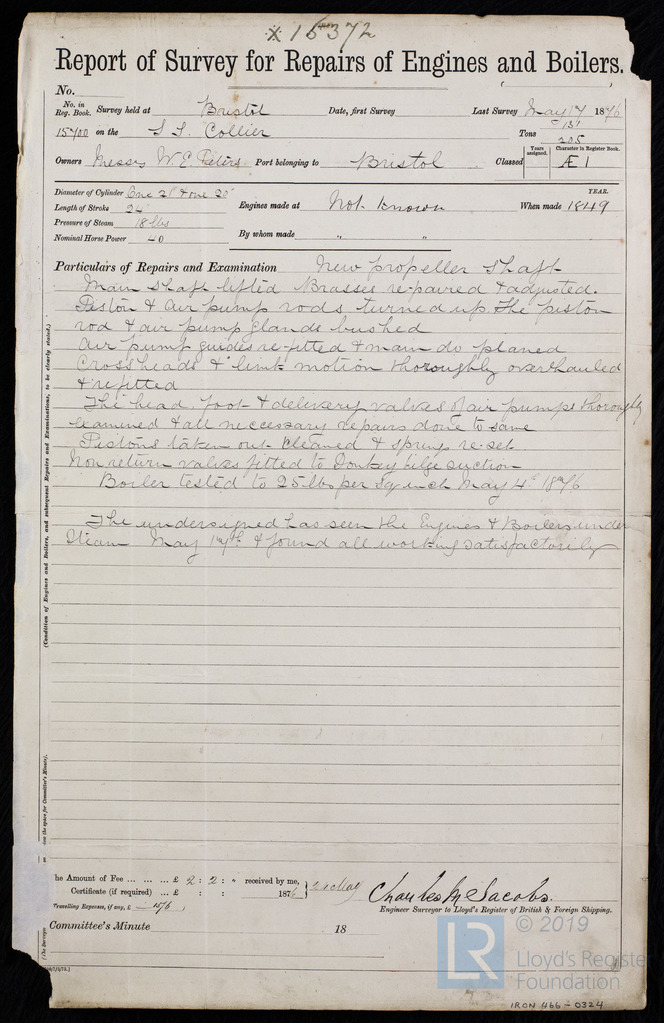 x 15372
Report of Survey for Repairs of Engines and Boilers.
No.
No. in Reg. Book. Survey held at Bristol Date, first Survey Last Survey May 17 1876
15700 on the S.S. Collier Tons 131 205
Owners Messrs W. E. Peters Port belonging to Bristol Classed Years assigned. Character in Register Book. Æ 1
Diameter of Cylinder One 21" & one 20"
Length of Stroke 24"
Pressure of Steam 18 lbs
Nominal Horse Power 40
Engines made at Not known When made YEAR. 1849
By whom made " "
Particulars of Repairs and Examination New propeller shaft
Main shaft lifted Brasses repaired & adjusted.
Piston & Air pump rods turned up. The piston
rod & air pump glands bushed
Air pump guides re-fitted & main do planed
Crossheads & link motion thoroughly overhauled
& refitted
The head, foot & delivery valves of air pumps thoroughly
examined & all necessary repairs done to same
Pistons taken out cleaned & springs re-set.
Non return valves fitted to Donkey bilge suction
Boiler tested to 25 lbs per Sq inch May 4th 1876
The undersigned has seen the Engines & Boilers under
Steam May 17th & found all working satisfactorily
(Condition of Engines and Boilers, and subsequent Repairs and Examinations, to be clearly stated.)
the space for Committee's Minute).
he Amount of Fee ... ... ... £ 2 : 2 : " received by me,
Certificate (if required) ... £ : : 1876
Travelling Expenses, if any, £ — 15/6
Charles M Jacobs.
Engineer Surveyor to Lloyd's Register of British & Foreign Shipping.
Committee's Minute 18
© 2019
LR
Lloyd's Register
Foundation
IRON 466-0324